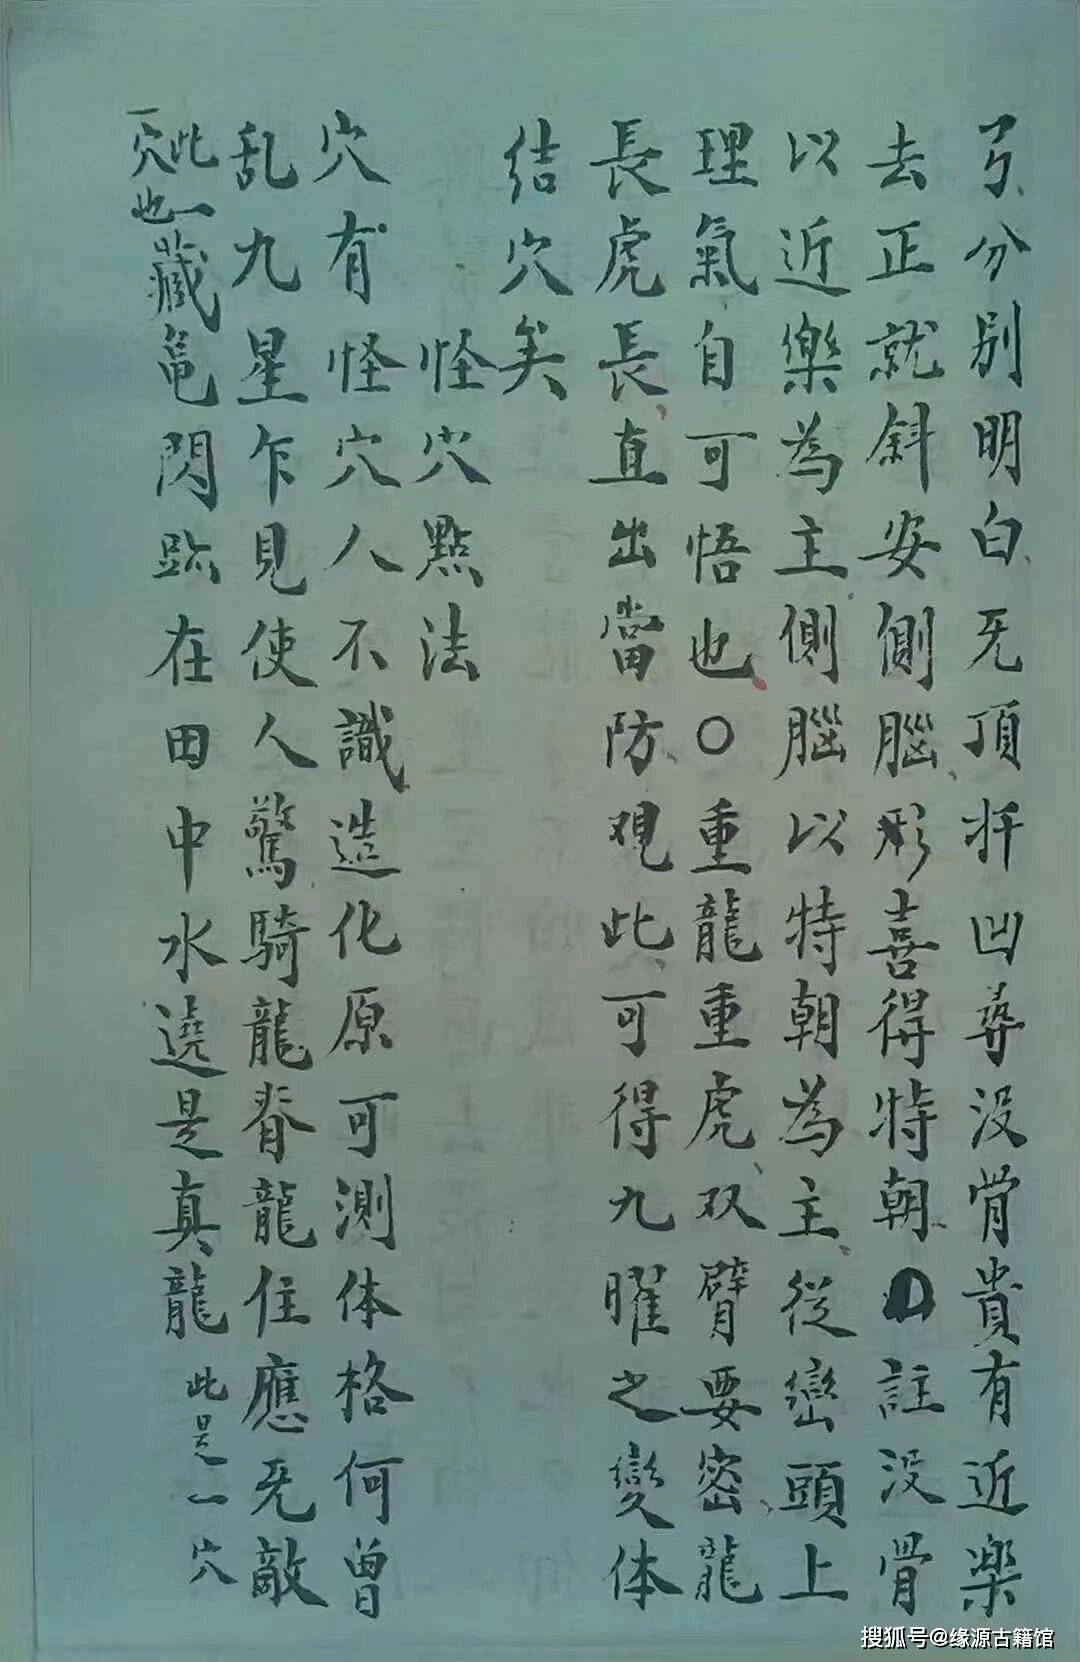 弓分別明白无頂扦凹葬没骨貴有近樂
去正就斜安側腦形喜得特朝 註没骨
以近樂為主側腦以特朝為主從巒頭上
理氣自可悟也〇重龍重虎双臂要密龍
長虎長長直出當防观此可得九曜之變体
结穴矣
怪穴點法
穴有怪穴人不識造化原可測体格何曾
乱九星乍見使人驚騎龍脊龍住應无敵
此一穴也藏亀閃跡在田中水遶是真龍此是一穴
搜狐号@缘源古籍馆